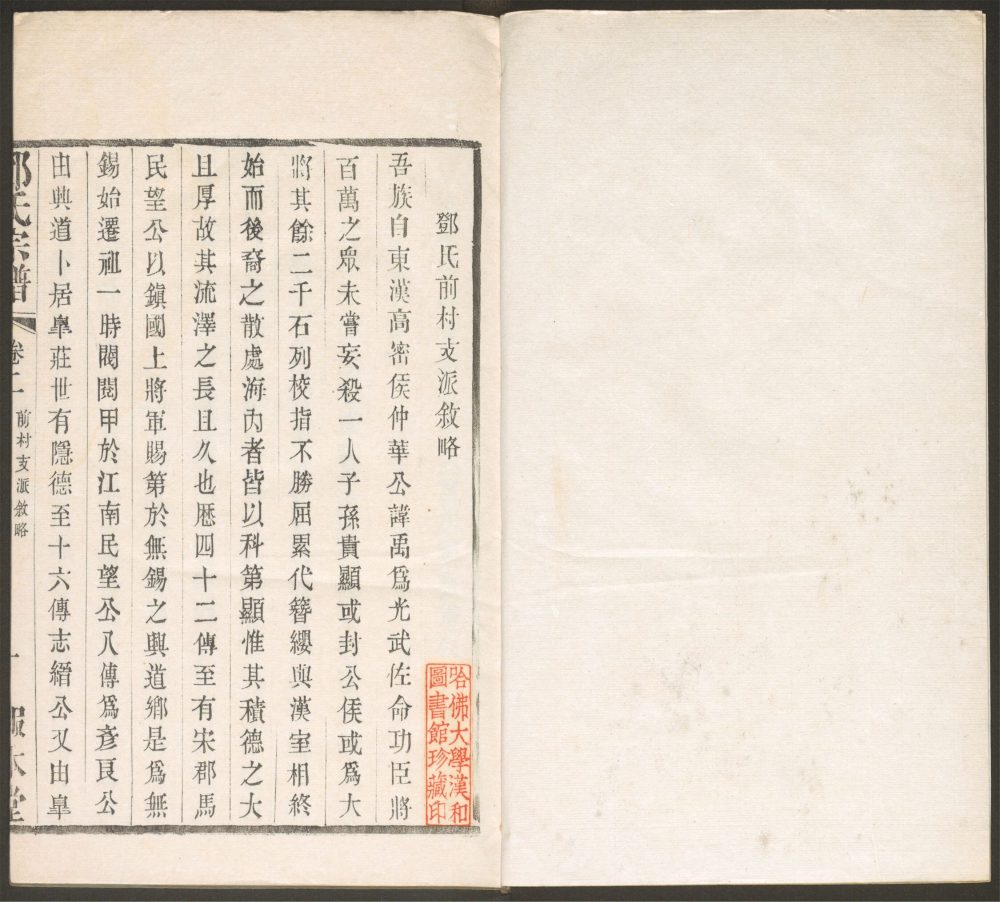 鄧氏前村支派敘略
吾族自東漢高密侯仲華公諱禹爲光武佐命功臣將
百萬之眾未嘗妄殺一人子孫貴顯或封公侯或爲大
將其餘二千石列校指不勝屈累代簪纓與漢室相終
始而後裔之散處海內者皆以科第顯惟其積德之大
且厚故其流澤之長且久也歷四十二傳至有宋郡馬
民望公以鎭國上將軍賜第於無錫之興道鄉是爲無
錫始遷祖一時閥閱甲於江南民望公八傳爲彥良公
由興道卜居皐莊世有隱德至十六傳志縉公又由皐
鄧氏宗譜
卷二
前村支派敘略
一
報本堂
哈佛大學漢和
圖書館珍藏印